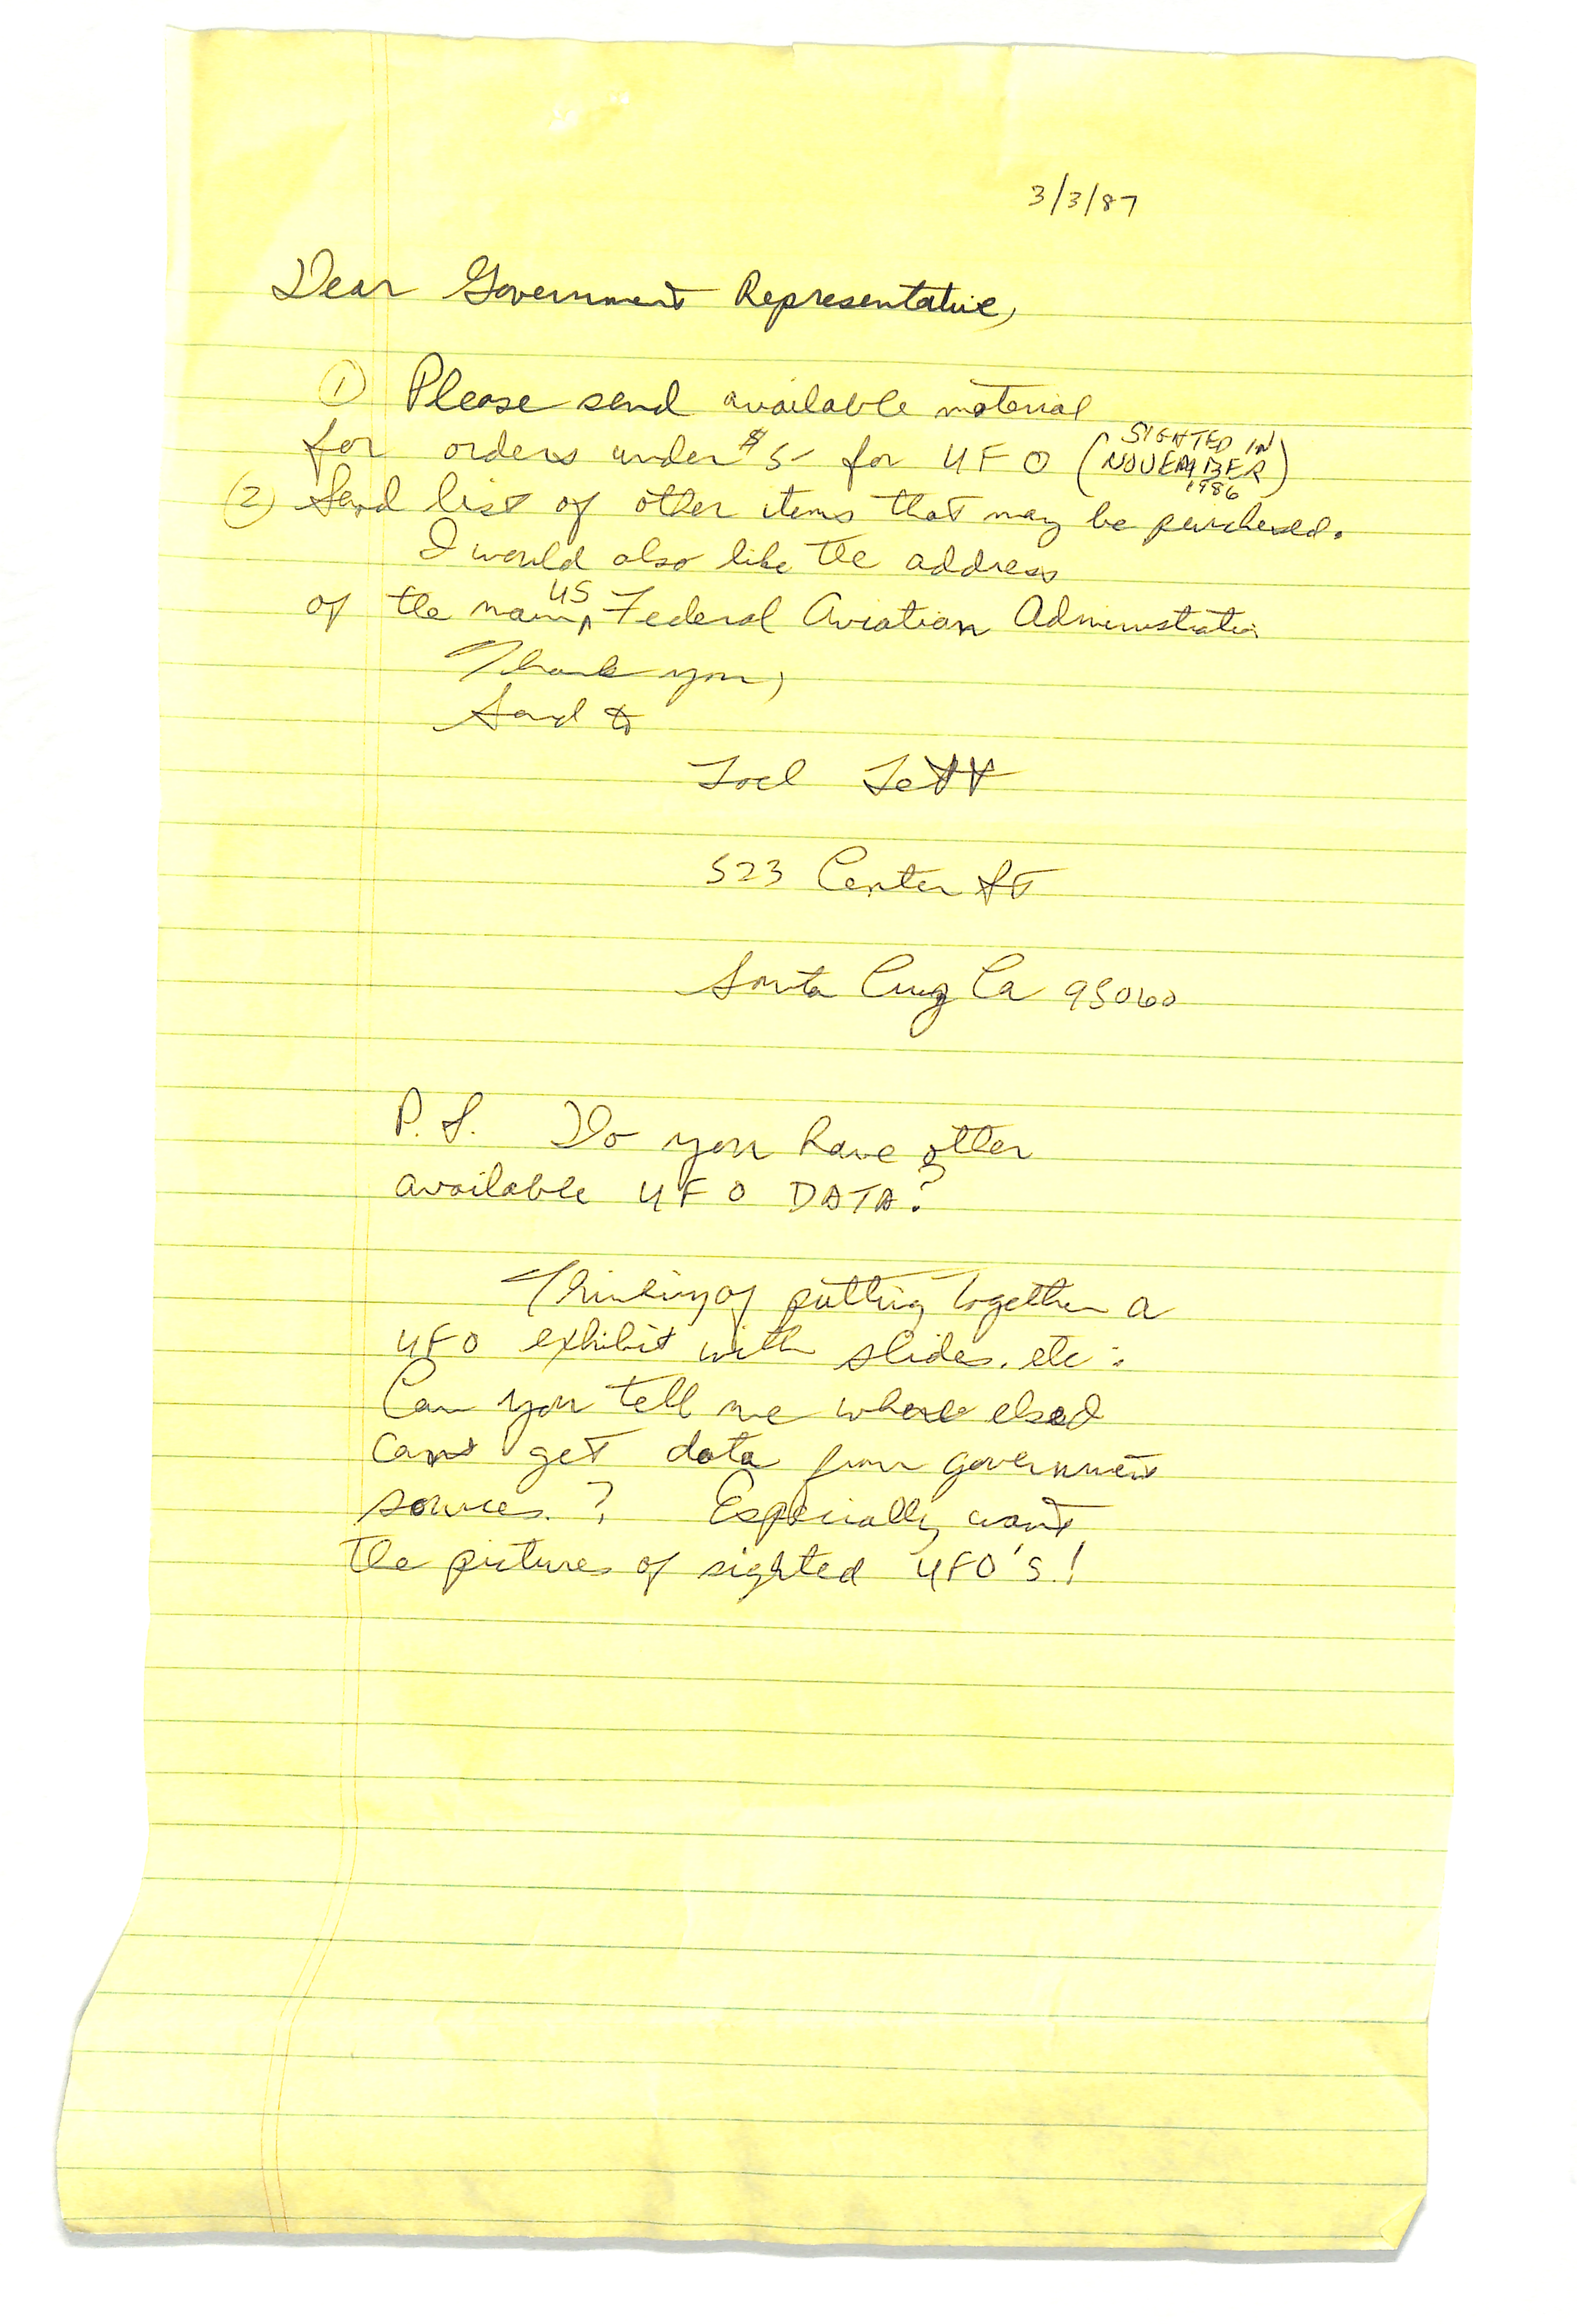 3/3/87
Dear Government Representative,
① Please send available material
for orders under $5- for UFO (SIGHTED IN NOVEMBER 1986)
(2) Send list of other items that may be purchased.
I would also like the address
of the main US Federal Aviation Administration
Thank you,
Send to
523 Center St
Santa Cruz Ca 95060
P.S. Do you have other
available UFO DATA?
Thinking of putting together a
UFO exhibit with slides, etc.
Can you tell me where else
can get data from government
sources.? Especially want
the pictures of sighted UFO's!